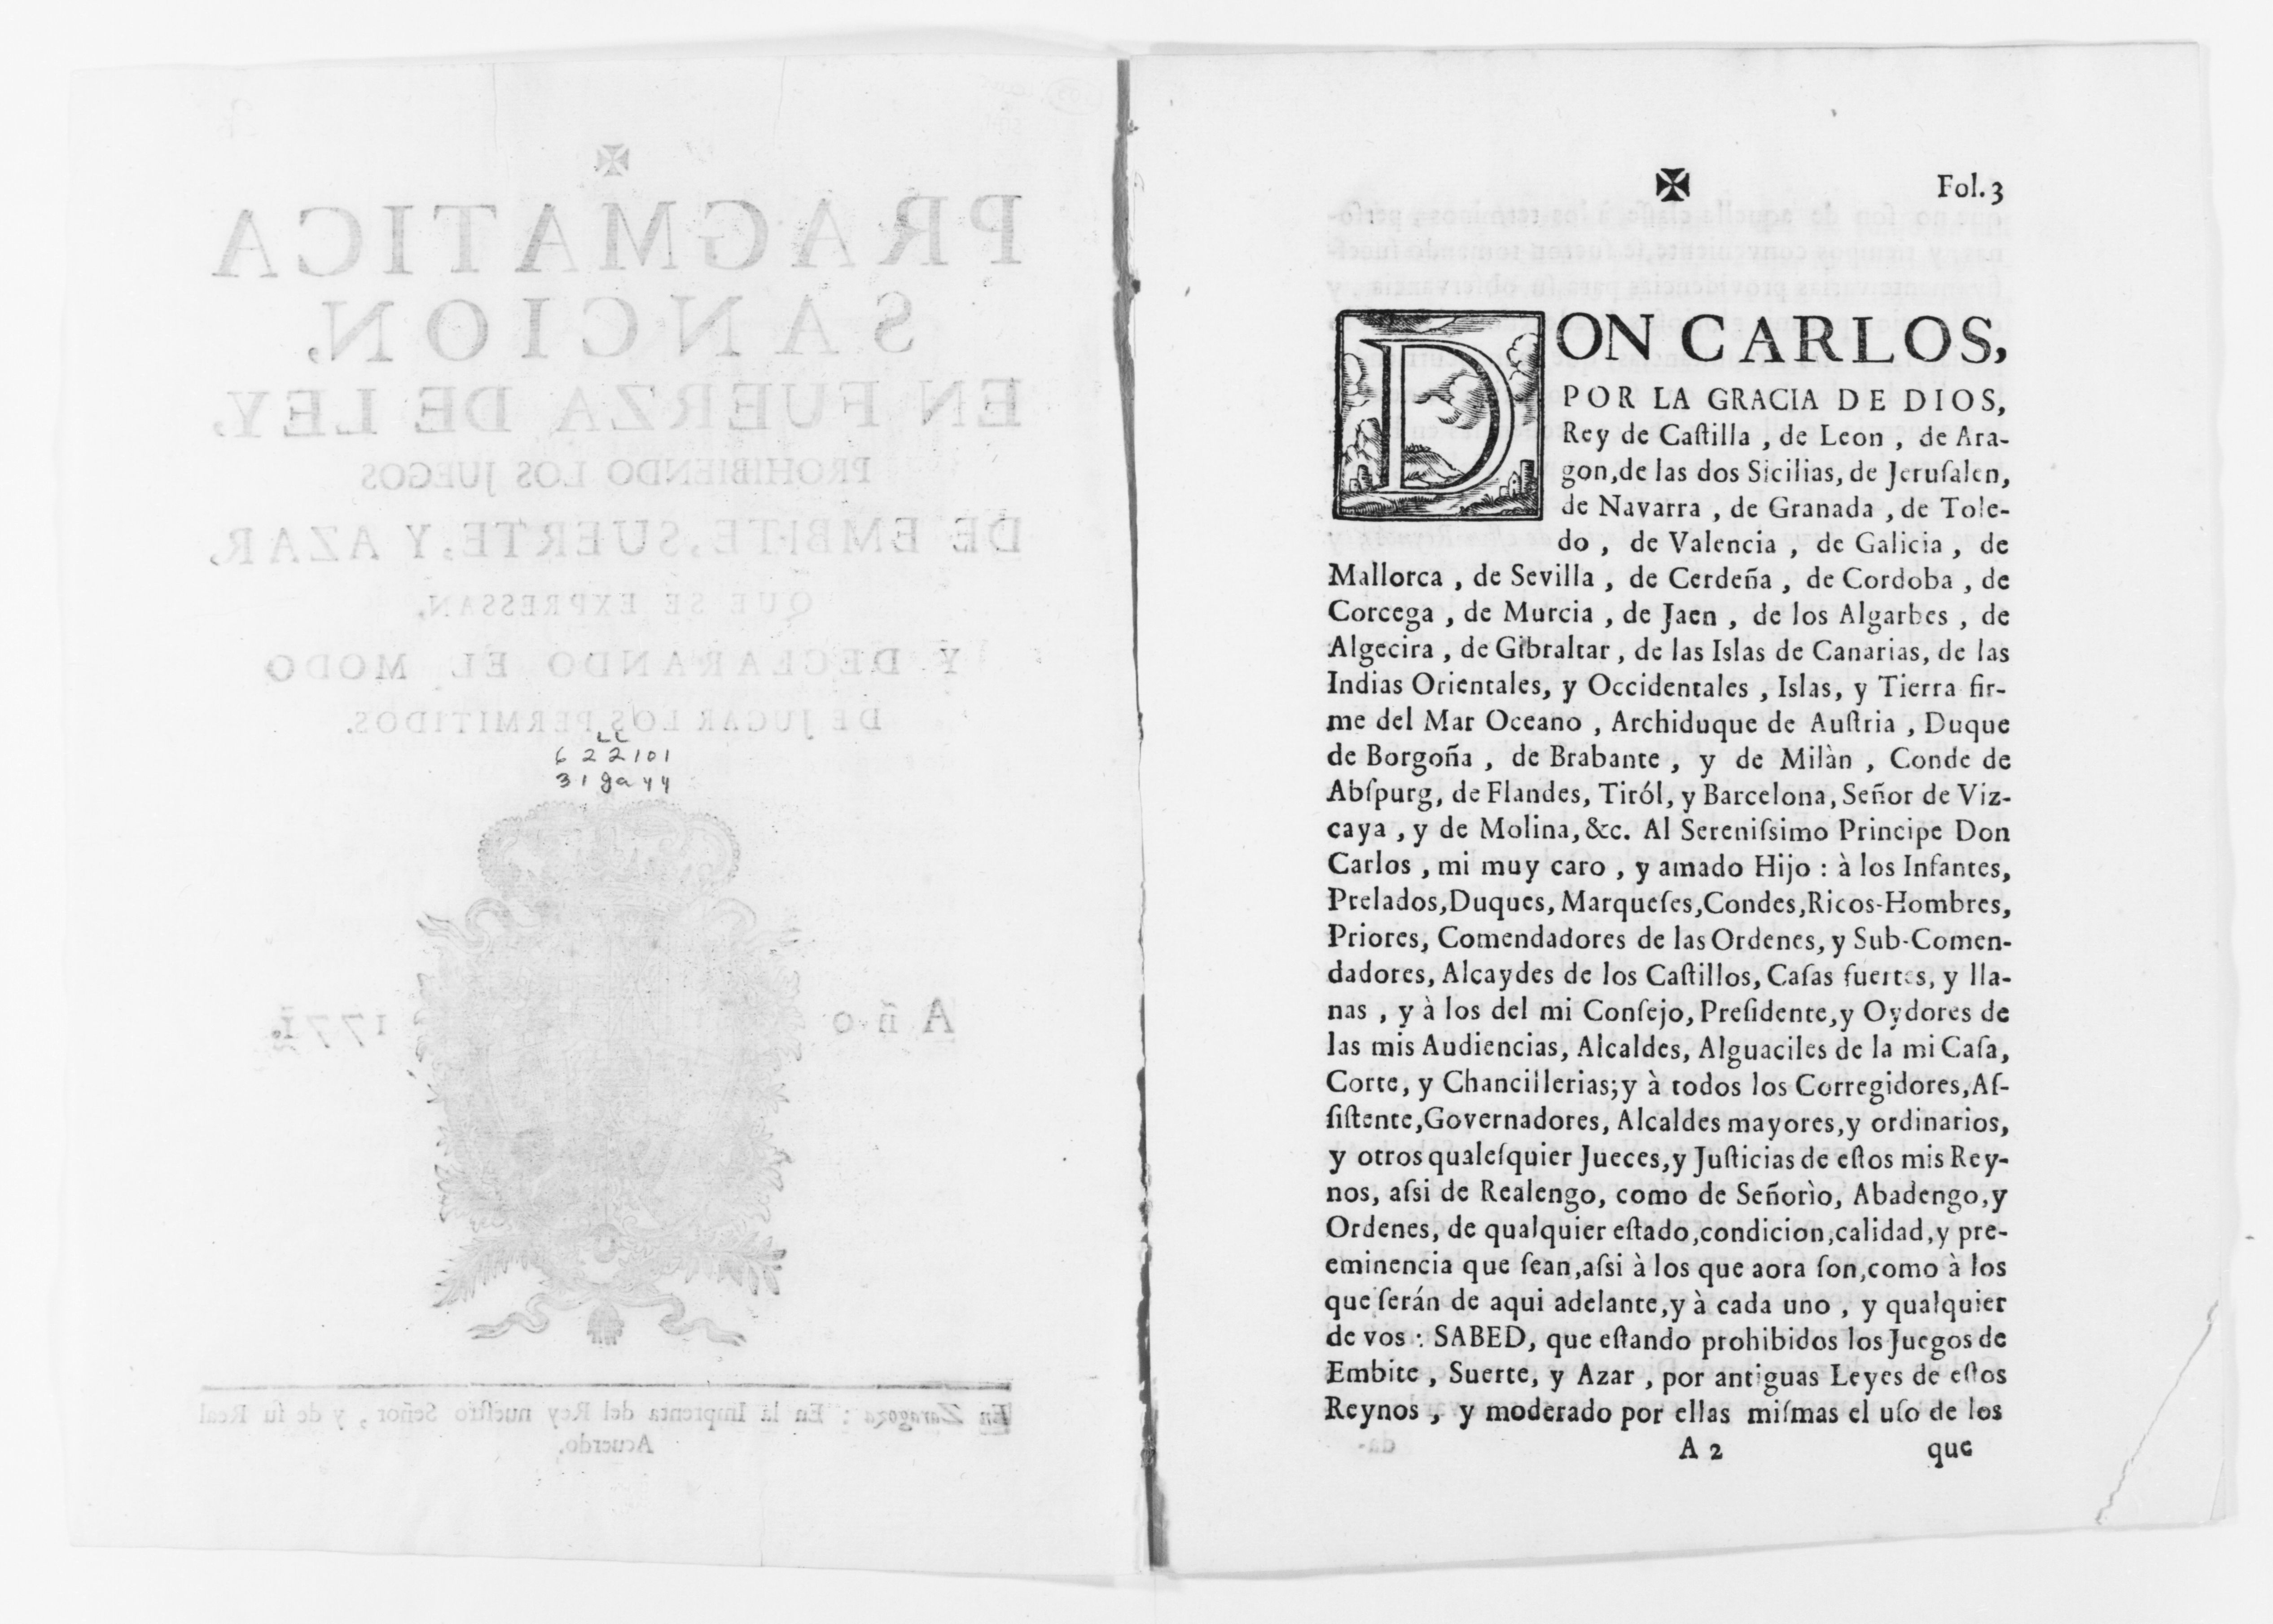 ✠
PRAGMATICA
SANCION,
EN FUERZA DE LEY,
PROHIBIENDO LOS JUEGOS
DE EMBITE, SUERTE, Y AZAR,
QUE SE EXPRESSAN,
Y DECLARANDO EL MODO
DE JUGAR LOS PERMITIDOS.
LC
622101
31ga44
Año 1771.
En Zaragoza : En la Imprenta del Rey nueſtro Señor , y de ſu Real
Acuerdo.
✠ Fol. 3
DON CARLOS,
POR LA GRACIA DE DIOS,
Rey de Caſtilla , de Leon , de Ara-
gon,de las dos Sicilias, de Jeruſalen,
de Navarra , de Granada , de Tole-
do , de Valencia , de Galicia , de
Mallorca , de Sevilla , de Cerdeña , de Cordoba , de
Corcega , de Murcia , de Jaen , de los Algarbes , de
Algecira , de Gibraltar , de las Islas de Canarias, de las
Indias Orientales, y Occidentales , Islas, y Tierra fir-
me del Mar Oceano , Archiduque de Auſtria , Duque
de Borgoña , de Brabante , y de Milàn , Conde de
Abſpurg, de Flandes, Tiról, y Barcelona, Señor de Viz-
caya , y de Molina, &c. Al Sereniſsimo Principe Don
Carlos , mi muy caro , y amado Hijo : à los Infantes,
Prelados,Duques, Marqueſes,Condes,Ricos-Hombres,
Priores, Comendadores de las Ordenes, y Sub-Comen-
dadores, Alcaydes de los Caſtillos, Caſas fuertes, y lla-
nas , y à los del mi Conſejo, Preſidente,y Oydores de
las mis Audiencias, Alcaldes, Alguaciles de la mi Caſa,
Corte, y Chancillerias;y à todos los Corregidores,Aſ-
ſiſtente,Governadores, Alcaldes mayores,y ordinarios,
y otros qualeſquier Jueces,y Juſticias de eſtos mis Rey-
nos, aſsi de Realengo, como de Señorìo, Abadengo,y
Ordenes, de qualquier eſtado,condicion,calidad,y pre-
eminencia que ſean,aſsi à los que aora ſon,como à los
que ſerán de aqui adelante,y à cada uno , y qualquier
de vos : SABED, que eſtando prohibidos los Juegos de
Embite , Suerte, y Azar , por antiguas Leyes de eſtos
Reynos , y moderado por ellas miſmas el uſo de los
A 2 que